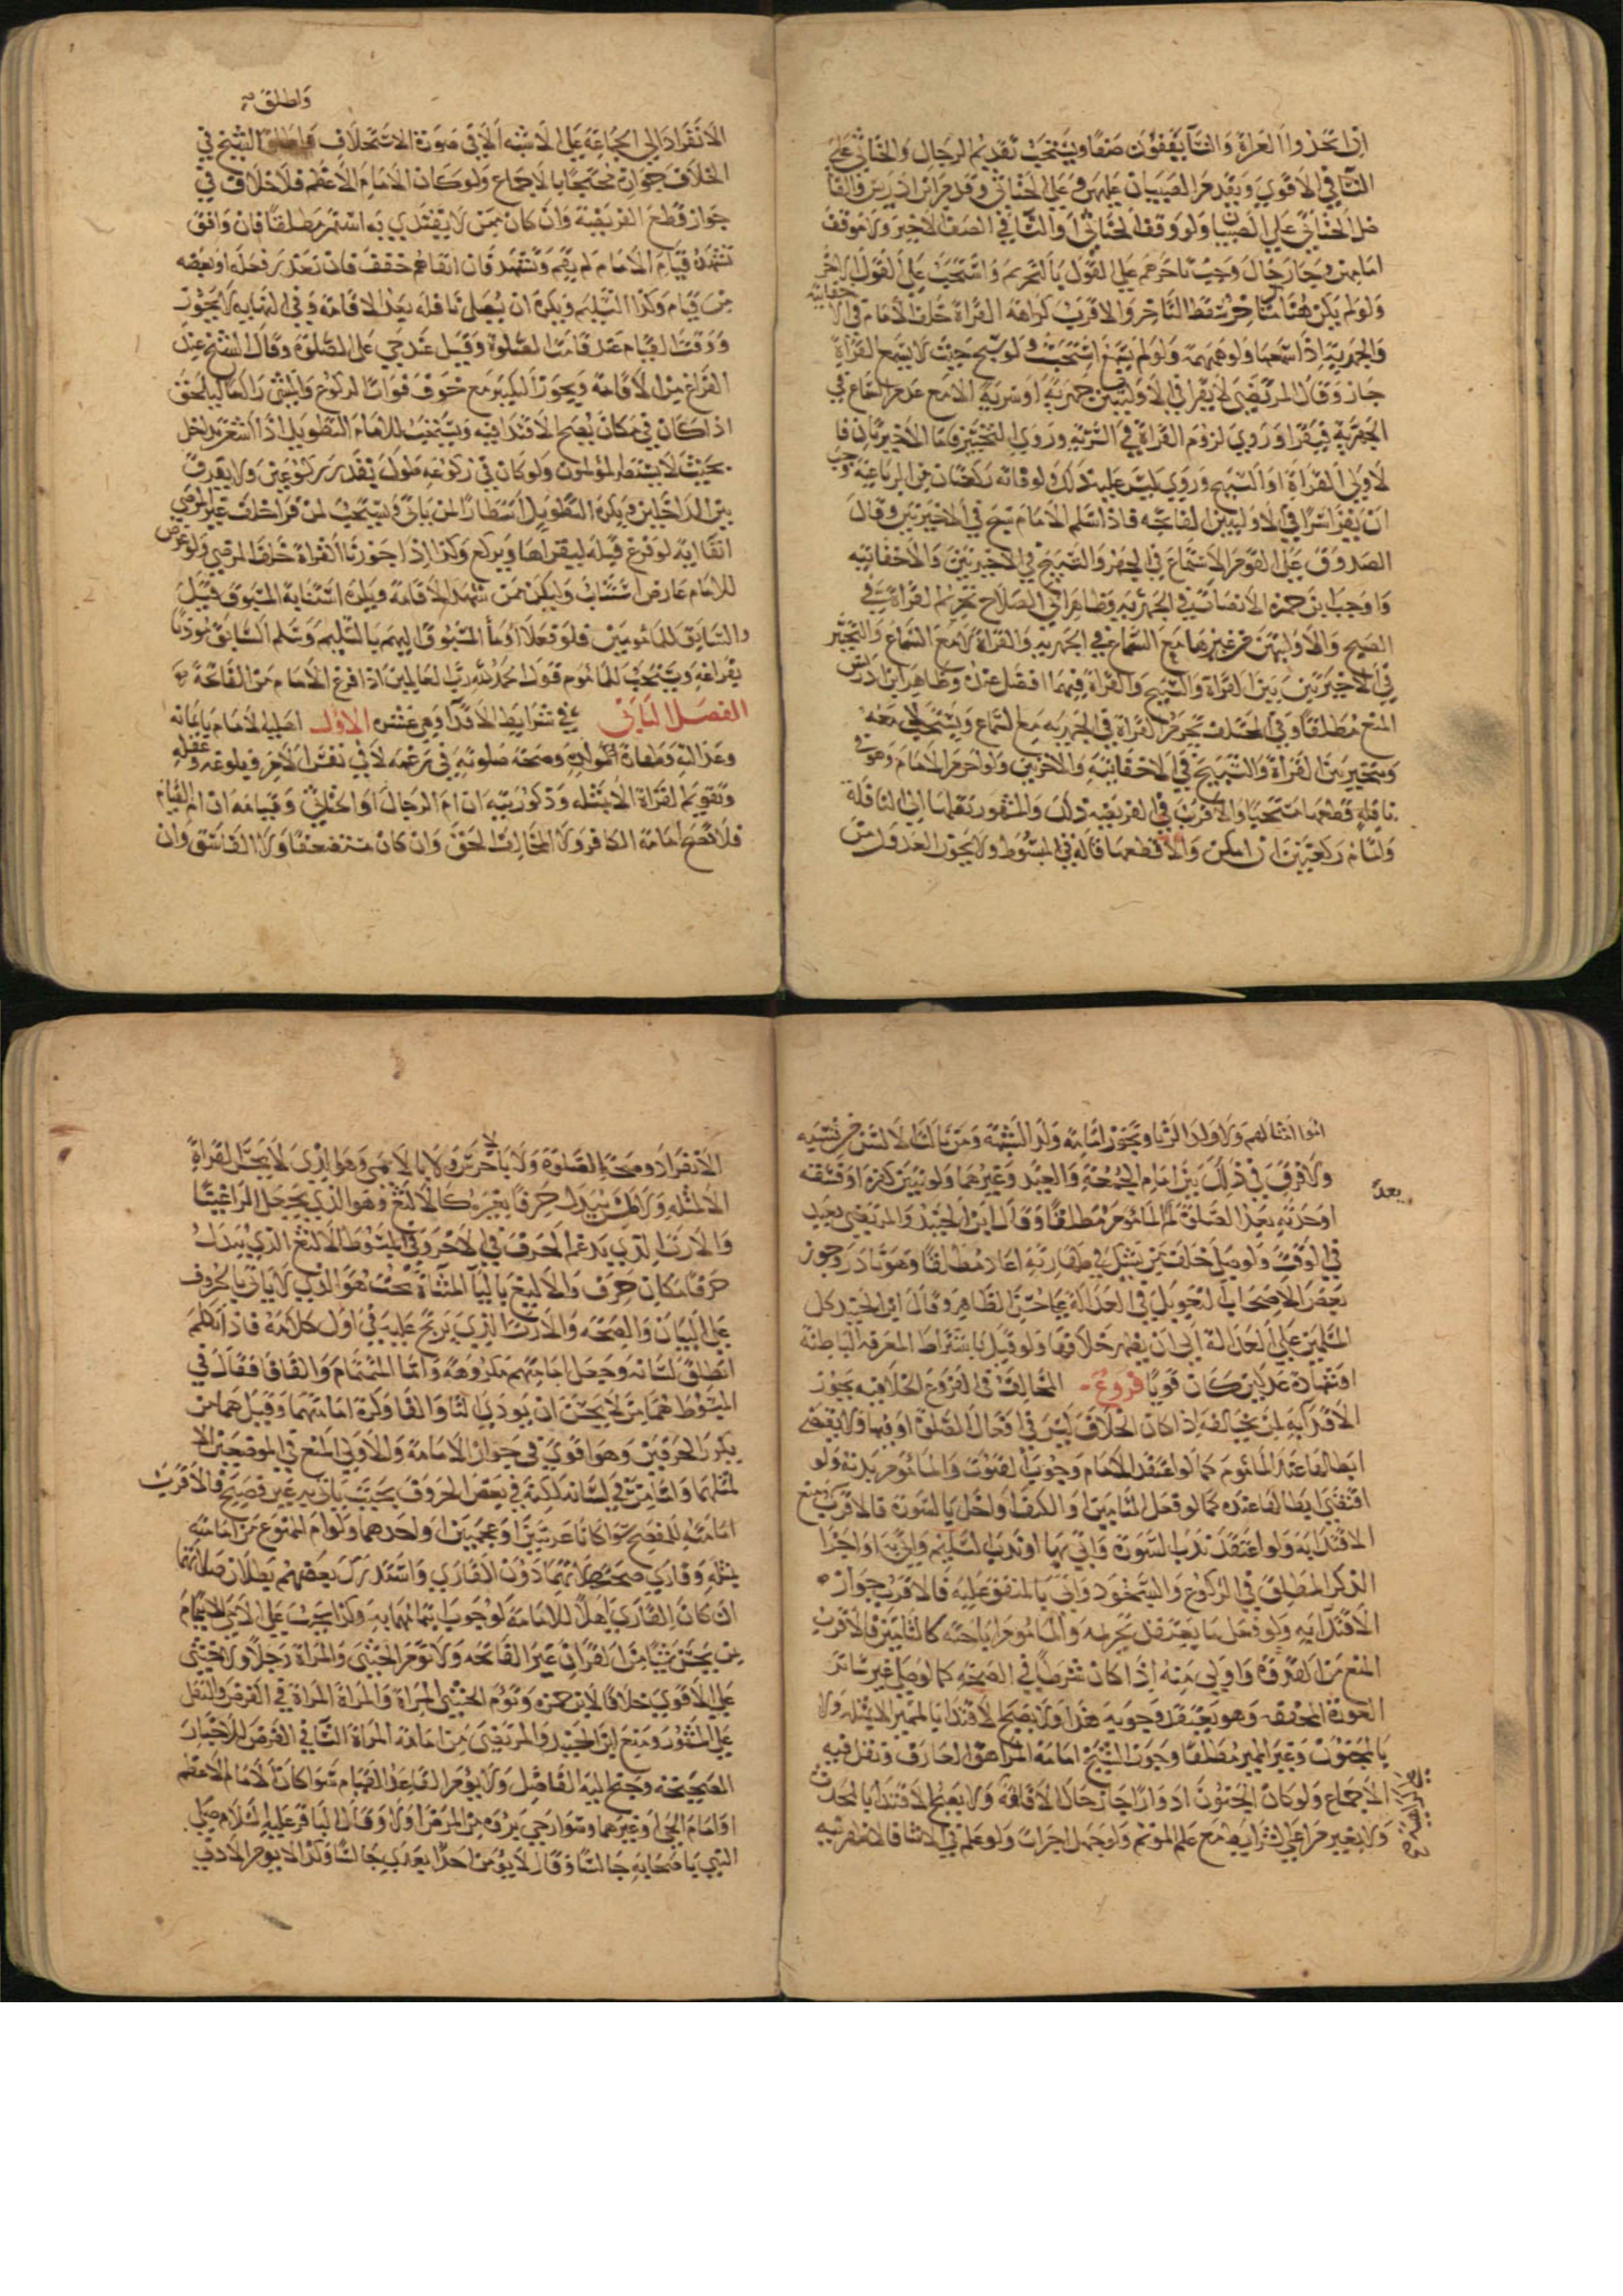 ان اتحذوا العراة والنساء يقفون صفا ويستحب تقديم الرجال والخناثى على
النسا في الاقوي ويقدم الصبيان عليهن وعلى الخناثى وقدم ابن ادريس والفا
ضل الخناثي علي الصبيان ولو وقف الخناثي او النسا في الصف الاخير ولا موقف
امامهن وجا رجال وجب تاخرهم علي القول بالتحريم واستحب علي القول الاخر
ولو لم يكن هنا متاخر سقط التاخر والاقرب كراهه القراة خلف الامام في الا
خفاتيه
والجهرية اذا سمعها ولو همهمة ولو لم يسمع استحبت ولو سبح حيث لا يسمع القراة
جاز وقال المرتضي لا يقرا في الاوليين جهرية او سرية الا مع عدم السماع في
الجهرية فيقرا وروي لزوم القراة في السرية وروي التخيير فاما الاخيرتان فا
لاولي القراة او التسبيح وروي ليس عليه ذلك ولو فاته ركعتان من الرباعية وجب
ان يقرا سرا في الاوليين الفاتحه فاذا سلم الامام سبح في الاخيرتين وقال
الصدوق علي القوم الاستماع في الجهر والتسبيح في الاخيرتين والاخفاتيه
واوجب ابن حمزة الانصات في الجهريه وظاهر ابي الصلاح تحريم القراة في
الصبح والاوليين من غيرها مع السماع في الجهريه والقراة لا مع السماع والتخير
في الاخيرتين بين القراة والتسبيح والقراة فيهما افضل عنده وظاهر ابن ادريس
المنع مطلقا وفي المختلف تحريم القراة في الجهريه مع السماع ويستحب لا معه
ويتخير بين القراة والتسبيح في الاخفاتيه والاخرتين ولو احرم الامام وهو في
نافلة قطعها مستحبا والاقرب في الفريضه ذلك والمشهور نقلها الى النافلة
واتمام ركعتين ان امكن والا قطعها قاله في المبسوط ولا يجوز العدول من
واطلق
الانفراد الي الجماعة علي الاشبه الا في صورة الاستخلاف الشيخ في
الخلاف جوازه محتجا بالاجماع ولو كان الامام الاعظم فلا خلاف في
جواز قطع الفريضة وان كان ممن لا يقتدي به استمر مطلقا فان وافق
تشهده قيام الامام لم يقم وتشهد فان اتقاهم خفف فان تعذر فعله او بعضه
من قيام وكذا التسليم ويكره ان يصلي نافله بعد الاقامه وفي النهايه لا يجوز
ووقت القيام عند قامت الصلوة وقيل عند حي على الصلوة وقال الشيخ عند
الفراغ من الاقامة ويجوز التكبير مع خوف فوات الركوع والمشي راكعا ليلحق
اذا كان في مكان يصح الاقتدا فيه ويستحب للامام التطويل اذا استشعر بداخل
بحيث لا يتضرر المؤتمون ولو كان في ركوعه طول بقدر ركوعين ولا يفرق
بين الداخلين ويكره التطويل انتظارا لمن ياتي ويستحب لمن قرا خلف غير المرضي
ابقا اية لو فرغ قبله ليقراها ويركع وكذا اذا جوزنا القراة خلف المرضي ولو عرض
للامام عارض استناب وليكن ممن شهد الاقامة ويكره استنابة المسبوق قيل
والسابق للمامومين فلو فعلا اومأ المسبوق اليهم بالتسليم وسلم السابق موذنا
بفراغه ويستحب للماموم قول الحمد لله رب العالمين اذا فرغ الامام من الفاتحة
الفصل الثاني في شرايط الاقتدا وهي عشرة الاول اهلية الامام بايمانه
وعدالته وطهارة المولد وصحة صلوته في زعمه لا في نفس الامر وبلوغه وعقله
وتقويم القراة الا بمثله وذكوريته ان ام الرجال او الخناثي وقيامه ان ام القيام
فلا تصح امامة الكافر ولا المخالف للحق وان كان مستضعفا ولا الفاسق وان
اموا امثالهم ولا ولد الزنا وتجوز امامة ولد الشبهة ومن نالته الالسن خفي نسبه
ولا فرق في ذلك بين امام الجمعة والعيد وغيرهما ولو تبين كفره او فسقه
بعد
او حدثه بعد الصلوة لم المامومر مطلقا وقال ابن الجنيد والمرتضي يعيد
في الوقت ولو صلي خلف من يشك في طهارته اعاد مطلقا وهو نادر وجوز
بعض الاصحاب التعويل في العدالة علي حسن الظاهر وقال ابن الجنيد كل
المسلمين علي العدالة الى ان يظهر خلافها ولو قيل باشتراط المعرفه الباطنة
او شهادة عدلين كان قويا فروع المخالف في الفروع الخلافيه يجوز
الاقتدا به لمن يخالفه اذا كان الخلاف ليس في افعال الصلوة او فيها ولا يقتضي
ابطالها عند الماموم كما لو اعتقد الامام وجوب القنوت والماموم ندبه ولو
اقتضي ابطالها عنده كما لو فعل التامين او الكتف او اخل بالسورة فالاقرب منع
الاقتدا به ولو اعتقد ندب السورة واتى بها او ندب التسليم واتى به او اجزا
الذكر المطلق في الركوع والسجود واتي بالمتفق عليه فالاقرب جواز
الاقتدا به ولو فعل ما يعتقد تحريمه والماموم اباحته كالتامين فالاقرب
المنع من القدوة واولي منه اذا كان شرطا في الصحة كما لو صلي غير ساتر
العورة المخففه وهو يعتقد وجوبه هذا ولا يصح الاقتدا بالمميز الا لمثله ولا
بالمجنون وغير المميز مطلقا وجوز الشيخ امامة المراهق العارف ونقل فيه
الاجماع ولو كان الجنون ادوارا جاز حال الافاقة ولا يصح الاقتدا بالمحدث
ولا بغير مراعي الشرايط مع علم الموتم ولو جهل اجزات ولو علم في الاثنا فالاظهر نيه
الانفراد وصحة الصلوة ولا باخرس ولا بالامي وهو الذي لا يحسن القراة
الا لمثله ولا لمن يبدل حرفا بغيره كالالثغ وهو الذي يجعل الرا غينا
والارت الذي يدغم الحرف في الاخر وفي المبسوط الالثغ الذي يبدل
حرفا مكان حرف والاليغ باليا المثناة تحت هو الذي لا ياتي بالحروف
علي البيان والصحه والارت الذي يرتج عليه في اول كلامه فاذا تكلم
انطلق لسانه وجعل امامتهم مكروهة واما التمتام والفافا فقال في
المبسوط هما من لا يحسن ان يودي التا والفا وكره امامتهما وقيل هما من
يكرر الحرفين وهو اقوي في جواز الامامة والاولي المنع في الموضعين الا
لمثلهما واما من في لسانه لكنة في بعض الحروف بحيث ياتي به غير فصيح فالاقرب
امامته للفصيح سوا كانا عربيين او عجميين او احدهما ولو ام الممنوع من امامته
بمثله وقاري صحت صلاتهما دون القاري واستدرك بعضهم بطلان صلاتهما
ان كان القاري اهلا للامامة لوجوب ايتمامهما به وكذا يجب علي الامي الايتمام
بمن يحسن شيا من القران غير الفاتحه ولا توم الخنثى والمراة رجلا ولا خنثى
علي الاقوي خلافا لابن حمزة وتؤم الخنثى المراة والمراة المراة في الفرض والنفل
علي المشهور ومنع ابن الجنيد والمرتضى من امامة المراة النسا في الفرض للاخبار
الصحيحة وجنح اليه الفاضل ولا يوم القاعد القيام سوا كان الامام الاعظم
او امام الحي او غيرهما وسوا رجي بروه من المرض او لا وقال الباقر عليه السلام صلى
النبي باصحابه جالسا وقال لا يؤمن احدا بعدي جالسا وكذا لا يوم الادني